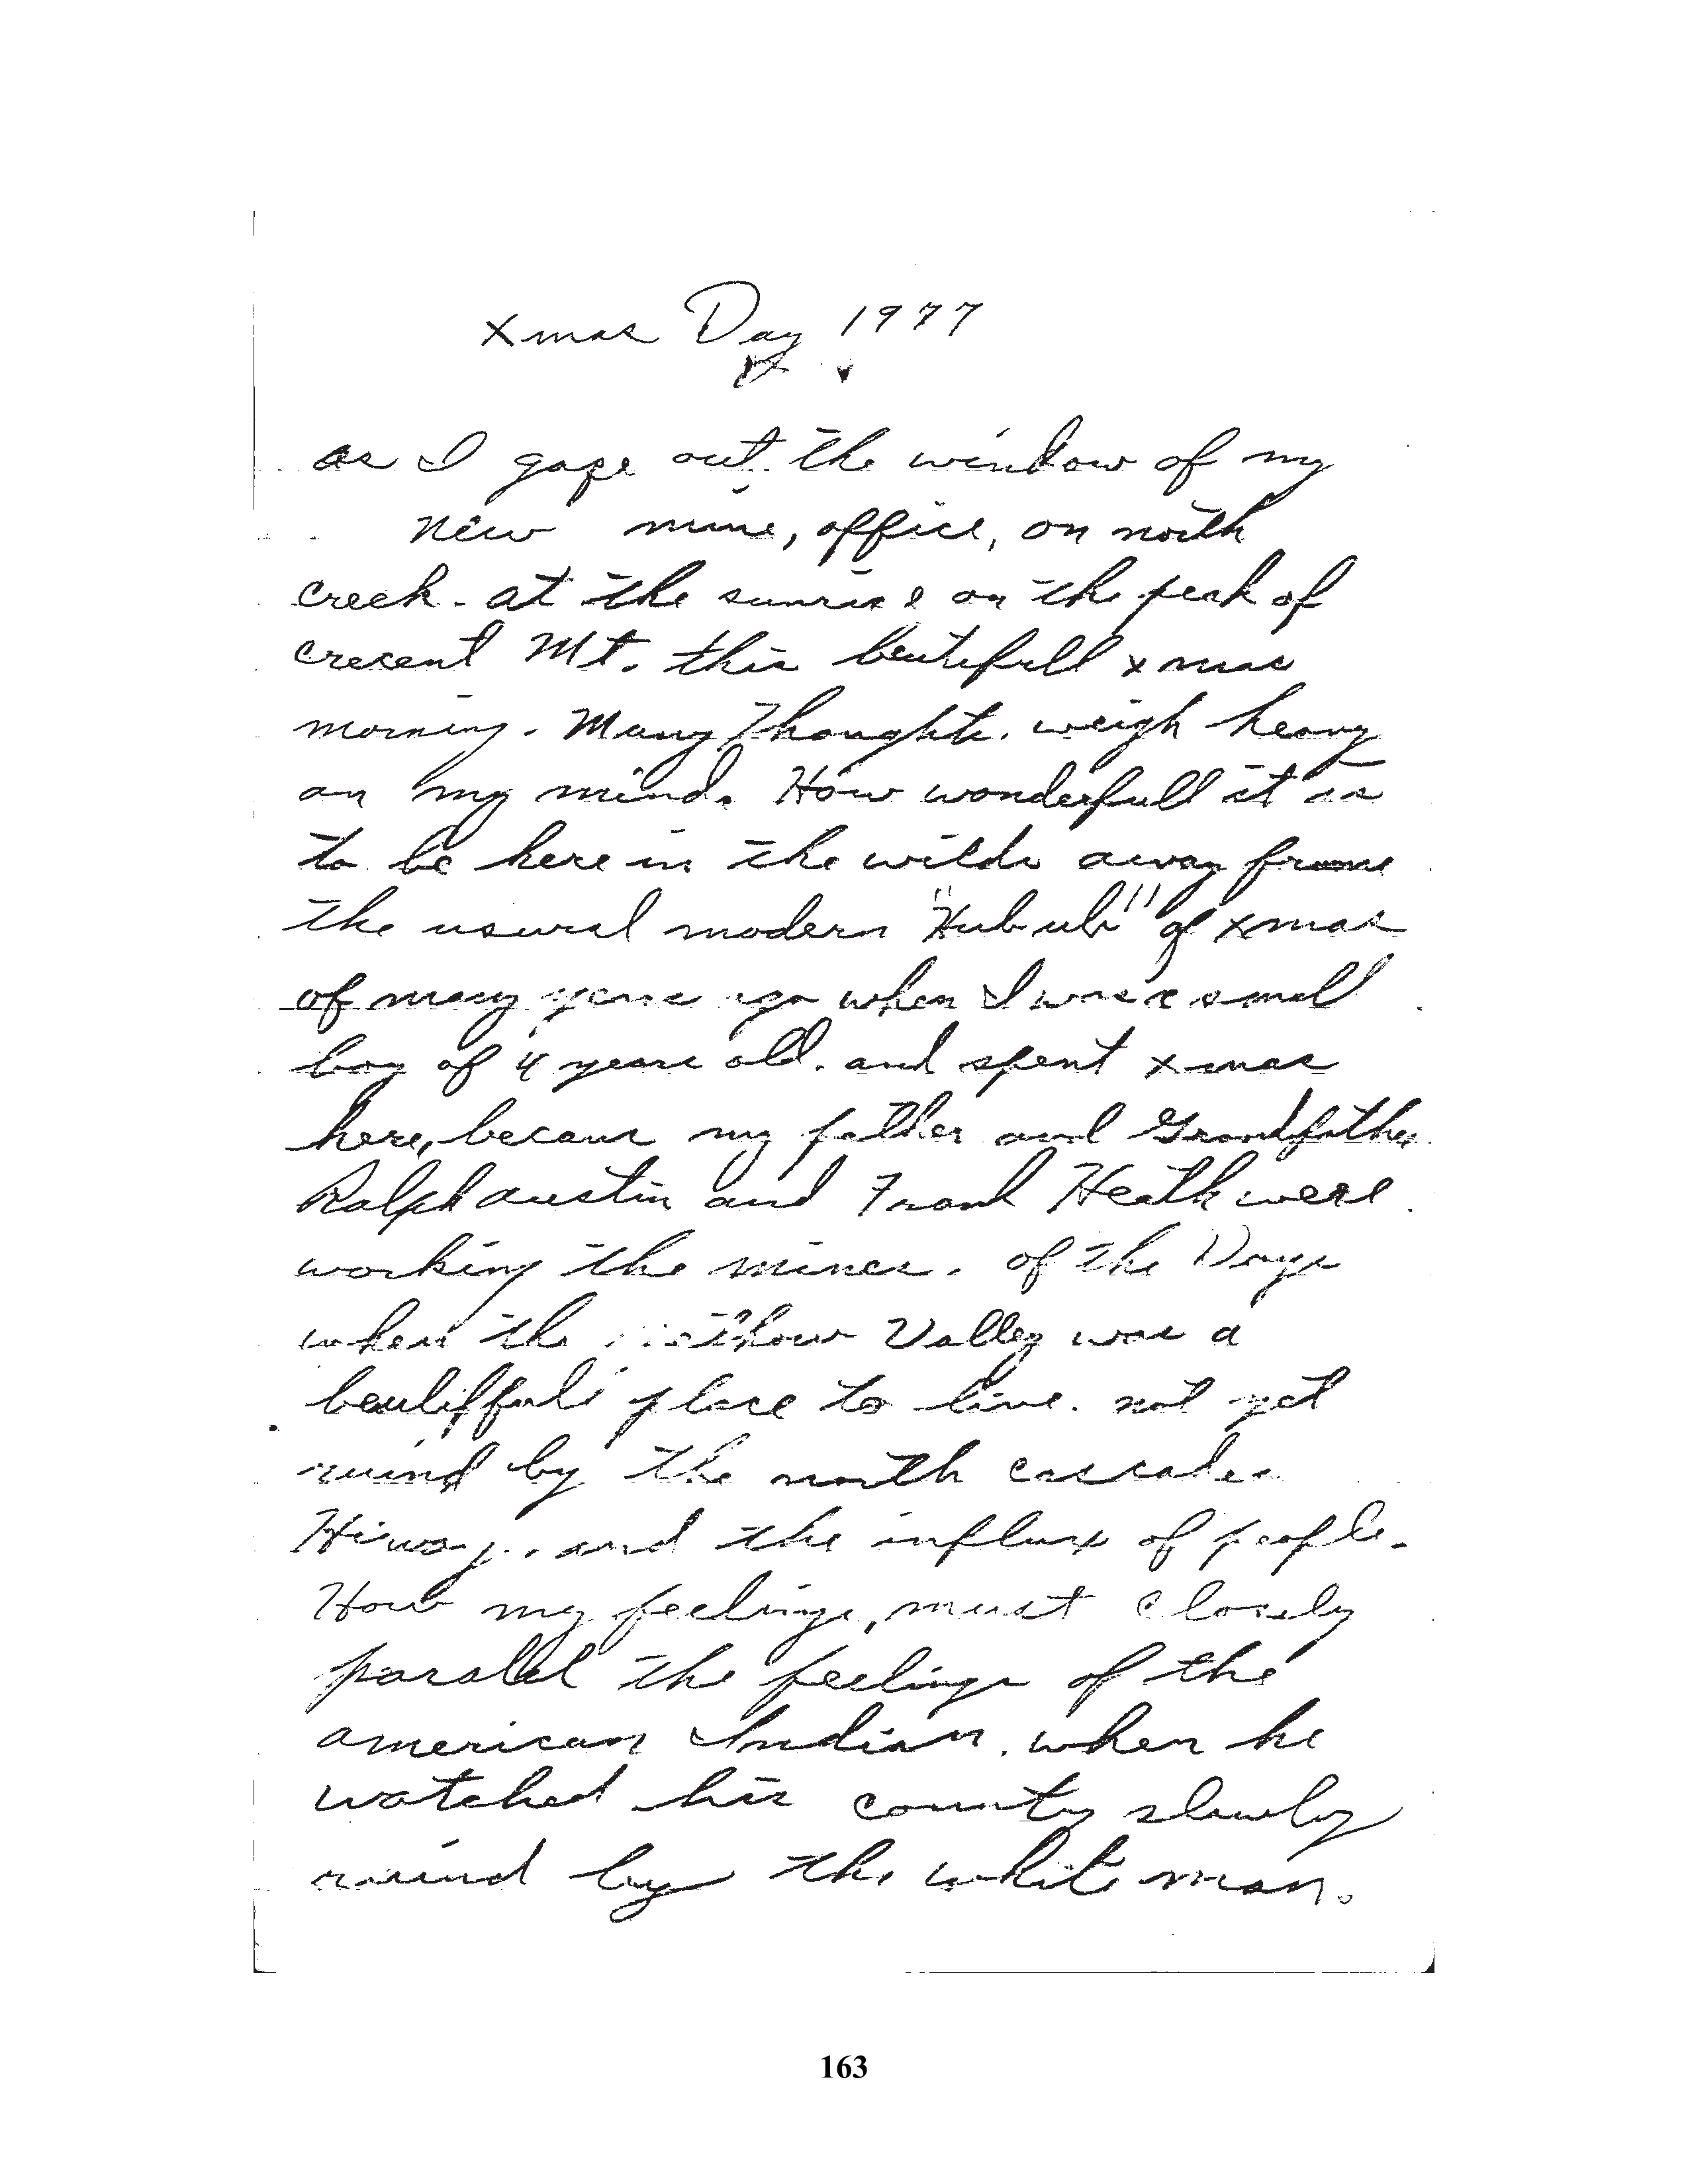 Xmas Day 1977
as I gaze out the window of my
new mine, office, on north
creek - at the sunrise on the peak of
crecent Mt. this beutifull xmas
morning. Many Thoughts. weigh heavy
on my mind. How wonderfull it is
to be here in the wilds away frome
the usural modern "Hubub" of xmas
of many years ago when I was a small
boy of 4 years old. and spent xmas
here, becaus my father and Grandfather
Ralph austin and Frank Heath were
working the mines. of the Days
when the Methow Valley was a
beutifful place to live. not yet
ruind by the north cascades
Hiway. and the influx of people.
How my feelings, must closely
paralel the feelings of the
american Indian. when he
watched his country slowly
ruind by the white man.
163